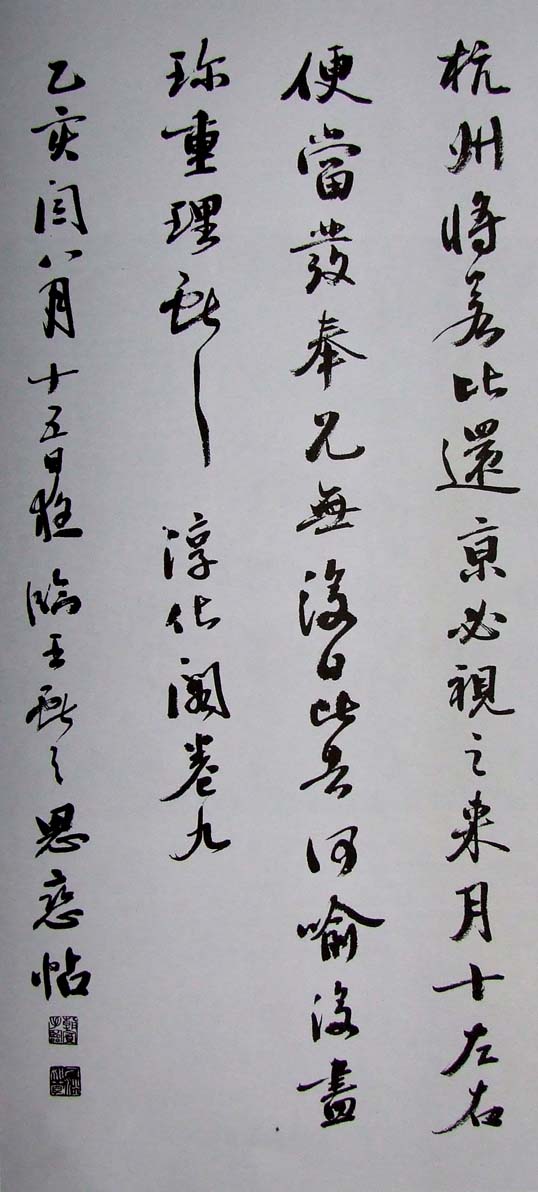 杭州將若比還京必視之來月十左右
便當發奉兄無復日比何喻復盡
珍重理獻之 淳化閣卷九
乙亥閏八月十五日臨王獻之思戀帖